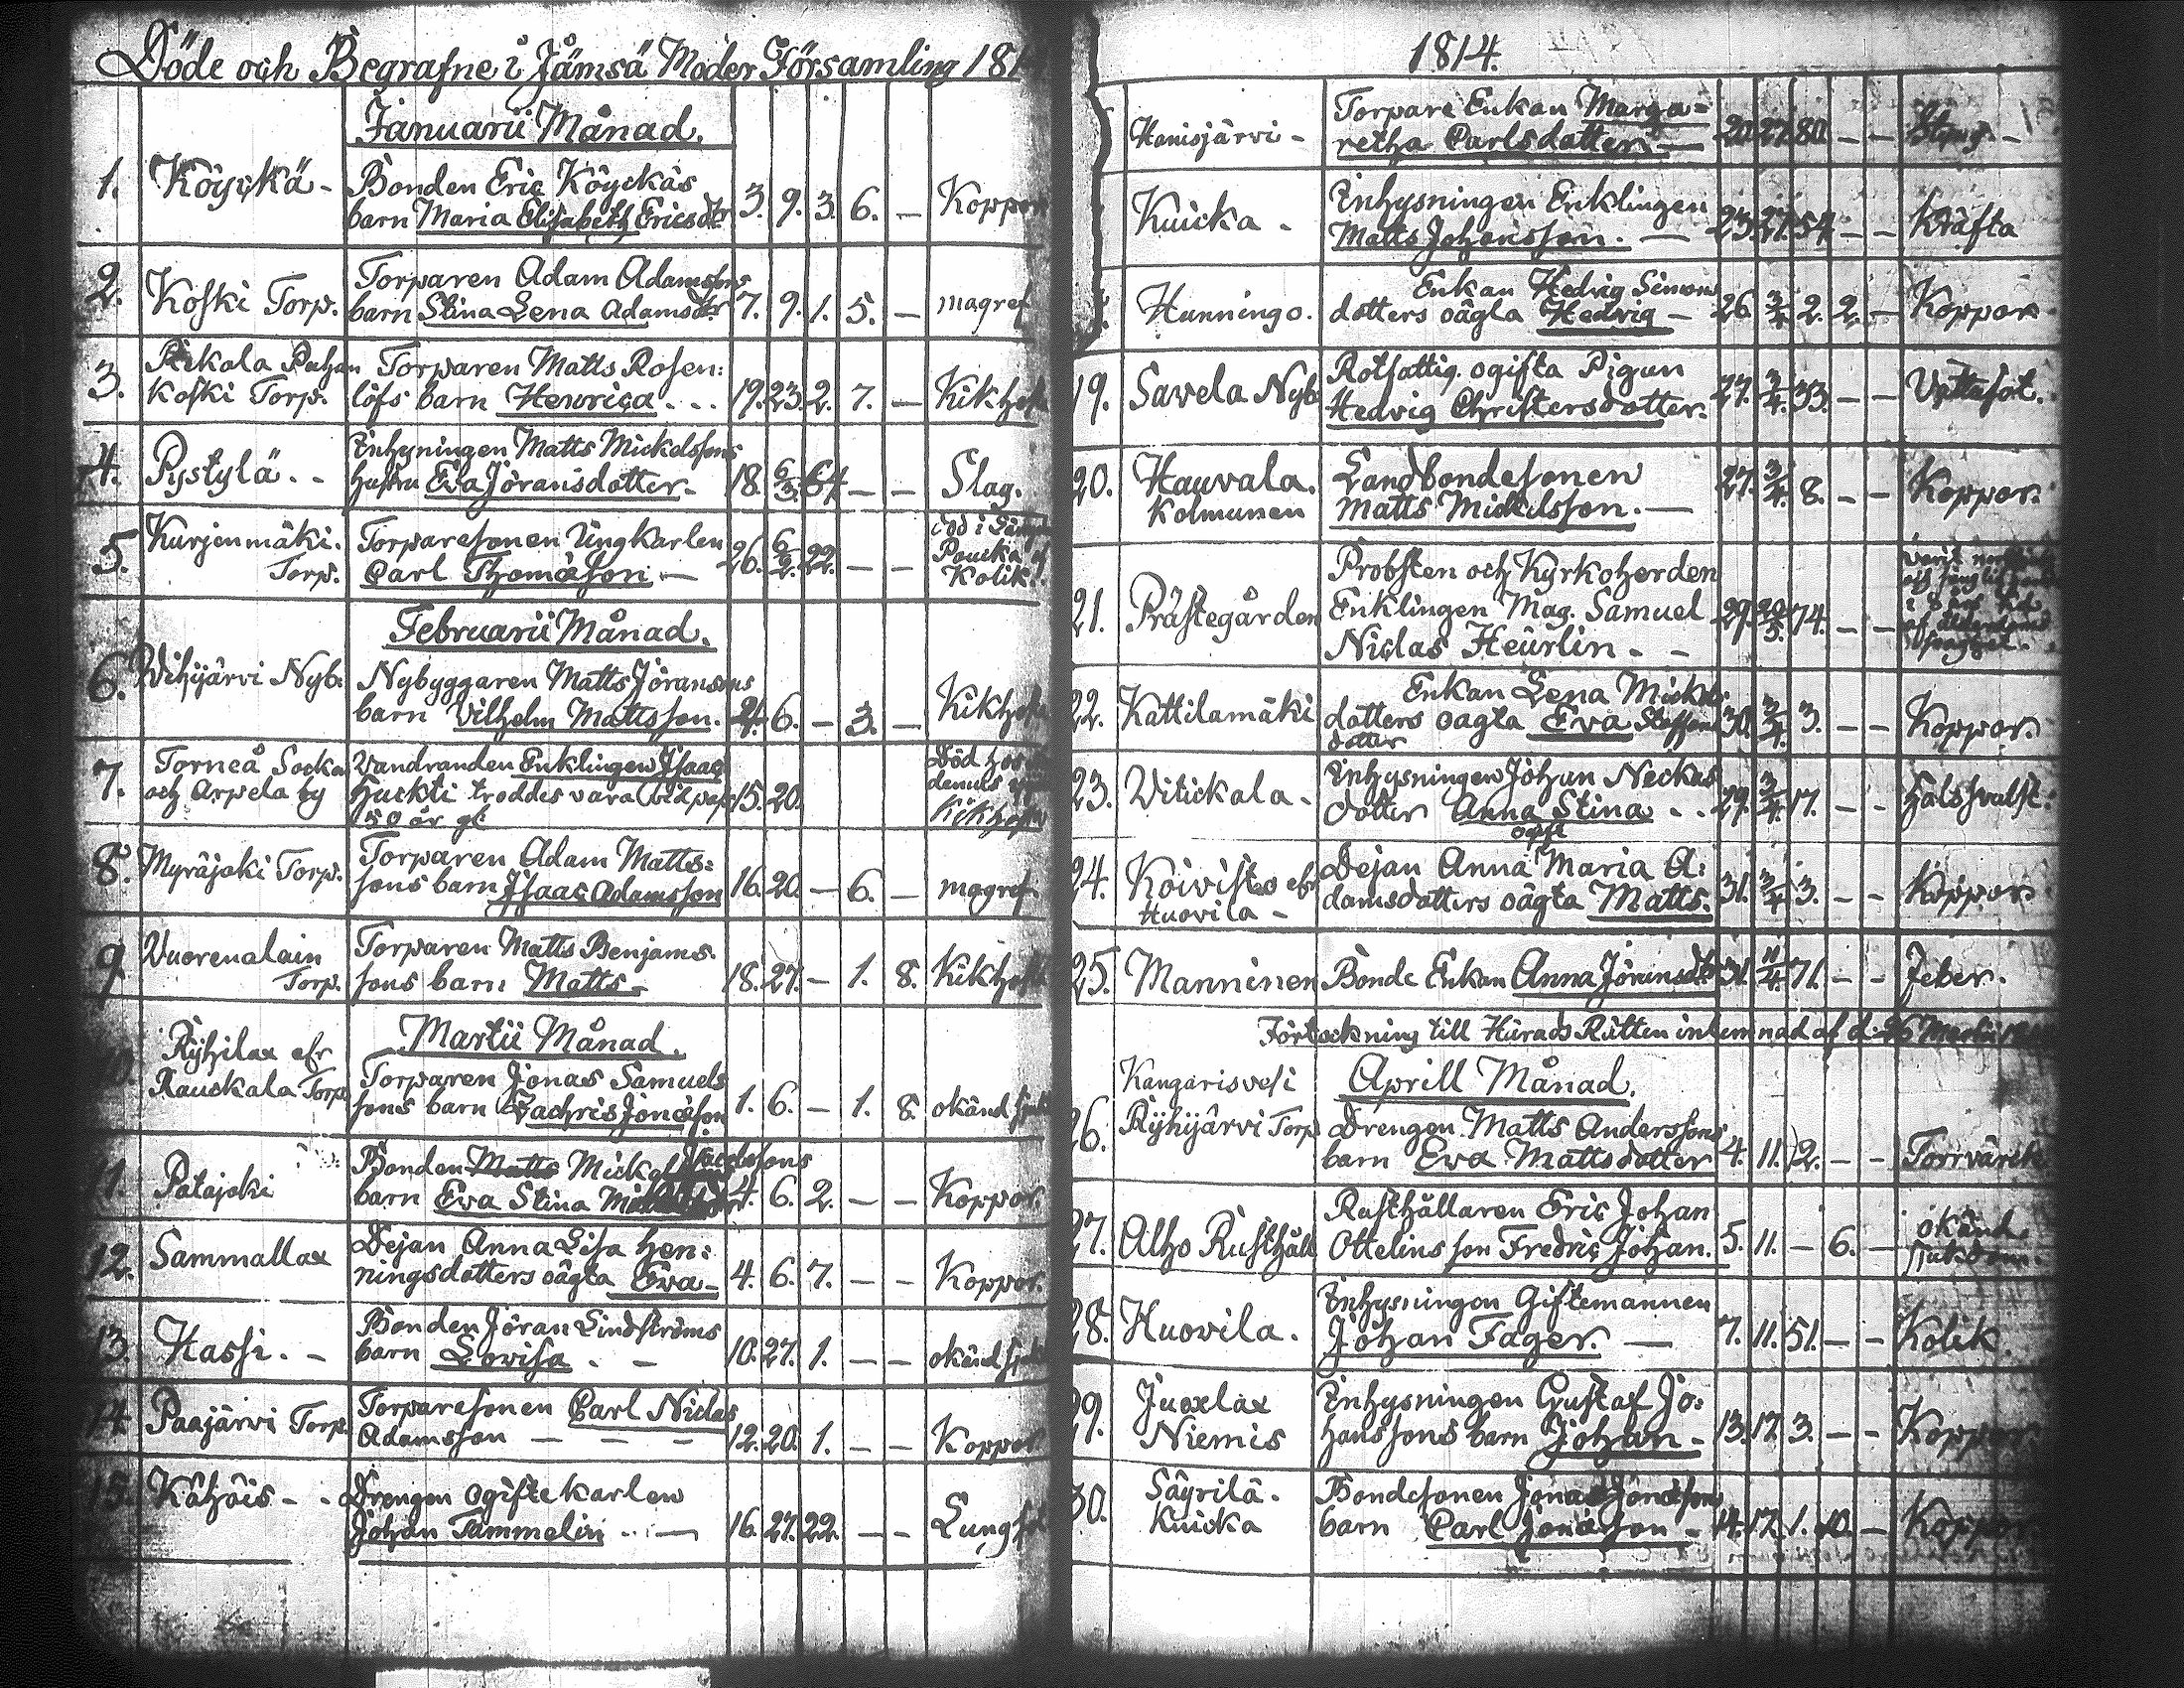 Döde och Begrafne i Jämsä Moder Församling 181
Januarii Månad.
1. Köyckä - Bonden Eric Köyckäs
barn Maria Elisabeth Ericsdr 3. 9. 3. 6. — Koppor
2. Koski Torp. Torparen Adam Adamssons
barn Stina Lena Adamsdr 7. 9. 1. 5. — magref
3. Koski Torp. Torparen Matts Rosen:
löfs barn Henrica . . . 19. 23. 2. 7. — Kikhosta
4. Pystylä . . Inhysningen Matts Mickelssons
hustru Eva Jöransdotter. 18. 6/3. 64 — — Slag.
5. Kurjenmäki. Torp. Torparesonen Ungkarlen
Carl Thomasson — 26. 6/2. 22. — — Kolik.
Februarii Månad.
6. Wihijärvi Nyb. Nybyggaren Matts Jöransons
barn Vilhelm Mattsson. 4. 6. — 3. — Kikhosta
7. Torneå Sockn och Arpela by Vandranden Enklingen Isaac
Huckti troddes vara vid pass 15. 20.
50 år gl Kikhosta
8. Myräjoki Torp. Torparen Adam Matts:
sons barn Isaac Adamsson 16. 20. — 6. — magref.
9 Vuorenalain Torp. Torparen Matts Benjams.
sons barn Matts — 18. 27. — 1. 8. Kikhosta
Martii Månad.
10. Ryhilax efr Rauckala Torp Torparen Jonas Samuels
sons barn Zachris Jonasson 1. 6. — 1. 8. okänd sjukd
11. Patajoki Bonden Matts Mickel Jacobssons
barn Eva Stina 4. 6. 2. — — Koppor.
12. Sammallax Dejan Anna Lisa Hen:
ningsdotters oägta Eva — 4. 6. 7. — — Koppor.
13. Hassi. — Bonden Jöran Lindströms
barn Lovisa . — 10. 27. 1. — — okänd sjukd
14 Paajärvi Torp. Torparesonen Carl Niclas
Adamsson — — — 12. 20. 1. — — Koppor
15. Kähöis - - Drengen ogifte karlen
Johan Tammelin . . . — 16. 27. 22. — — Lungsot
1814.
Hanisjärvi - Torpare Enkan Marga=
retha Carlsdotter. — 20. 27. 80. — —
Kuicka - Inhysningen Enklingen
Matts Johansson. — 23. 27. 54 — — Kräfta
Hunningo. Enkan Hedvig Simons
dotters oägta Hedvig — 26. 3/4. 2. 2. — Koppor
19. Savela Nyb. Rotfattig. ogifta Pigan
Hedvig Christersdotter. 27. 3/4. 33. — — Vattusot.
20. Hauvala. Kolmunen Landbondesonen
Matts Mickelsson. — 27. 3/4. 8. — — Koppor.
21. Prästegården Probsten och Kyrkoherden
Enklingen Mag. Samuel
Niclas Heurlin. - - 29. 20/5. 74. — —
22. Kattilamäki Enkan Lena Mickels
dotters oägta Eva Staffans
dotter 30. 3/4. 3. — — Koppor.
23. Witickala - Inhysningen Johan Neckas
dotter Anna Stina . . 29. 3/4. 17. — — Halssvulst.
24. Koivisto efr Huovila - Dejan ogift Anna Maria A:
damsdotters oägta Matts. 31. 3/4. 3. — — Koppor
25. Manninen Bonde Enkan Anna Jöransdr 31. 11/4. 71. — — Feber.
Förteckning till Härads Rätten inlemnad af d. 26 Martii
Aprill Månad.
26. Kangarisvesi Ryhijärvi Torp Drengen Matts Anderssons
barn Eva Mattsdotter 4. 11. 12. — — Torrvärk
27. Alho Rusthåll Rusthållaren Eric Johan
Ottelins son Fredric Johan. 5. 11. — 6. — okänd
sjukdom.
28. Huovila. Inhysningen Giftemannen
Johan Fager. — 7. 11. 51. — — Kolik.
29. Juoxlax Niemis Inhysningen Gustaf Jo:
hanssons barn Johan — 13. 17. 3. — — Koppor
30. Säyrilä. Kuicka Bondesonen Jonas Jonassons
barn Carl Jonasson — 14. 17. 1. 10. — Koppor.